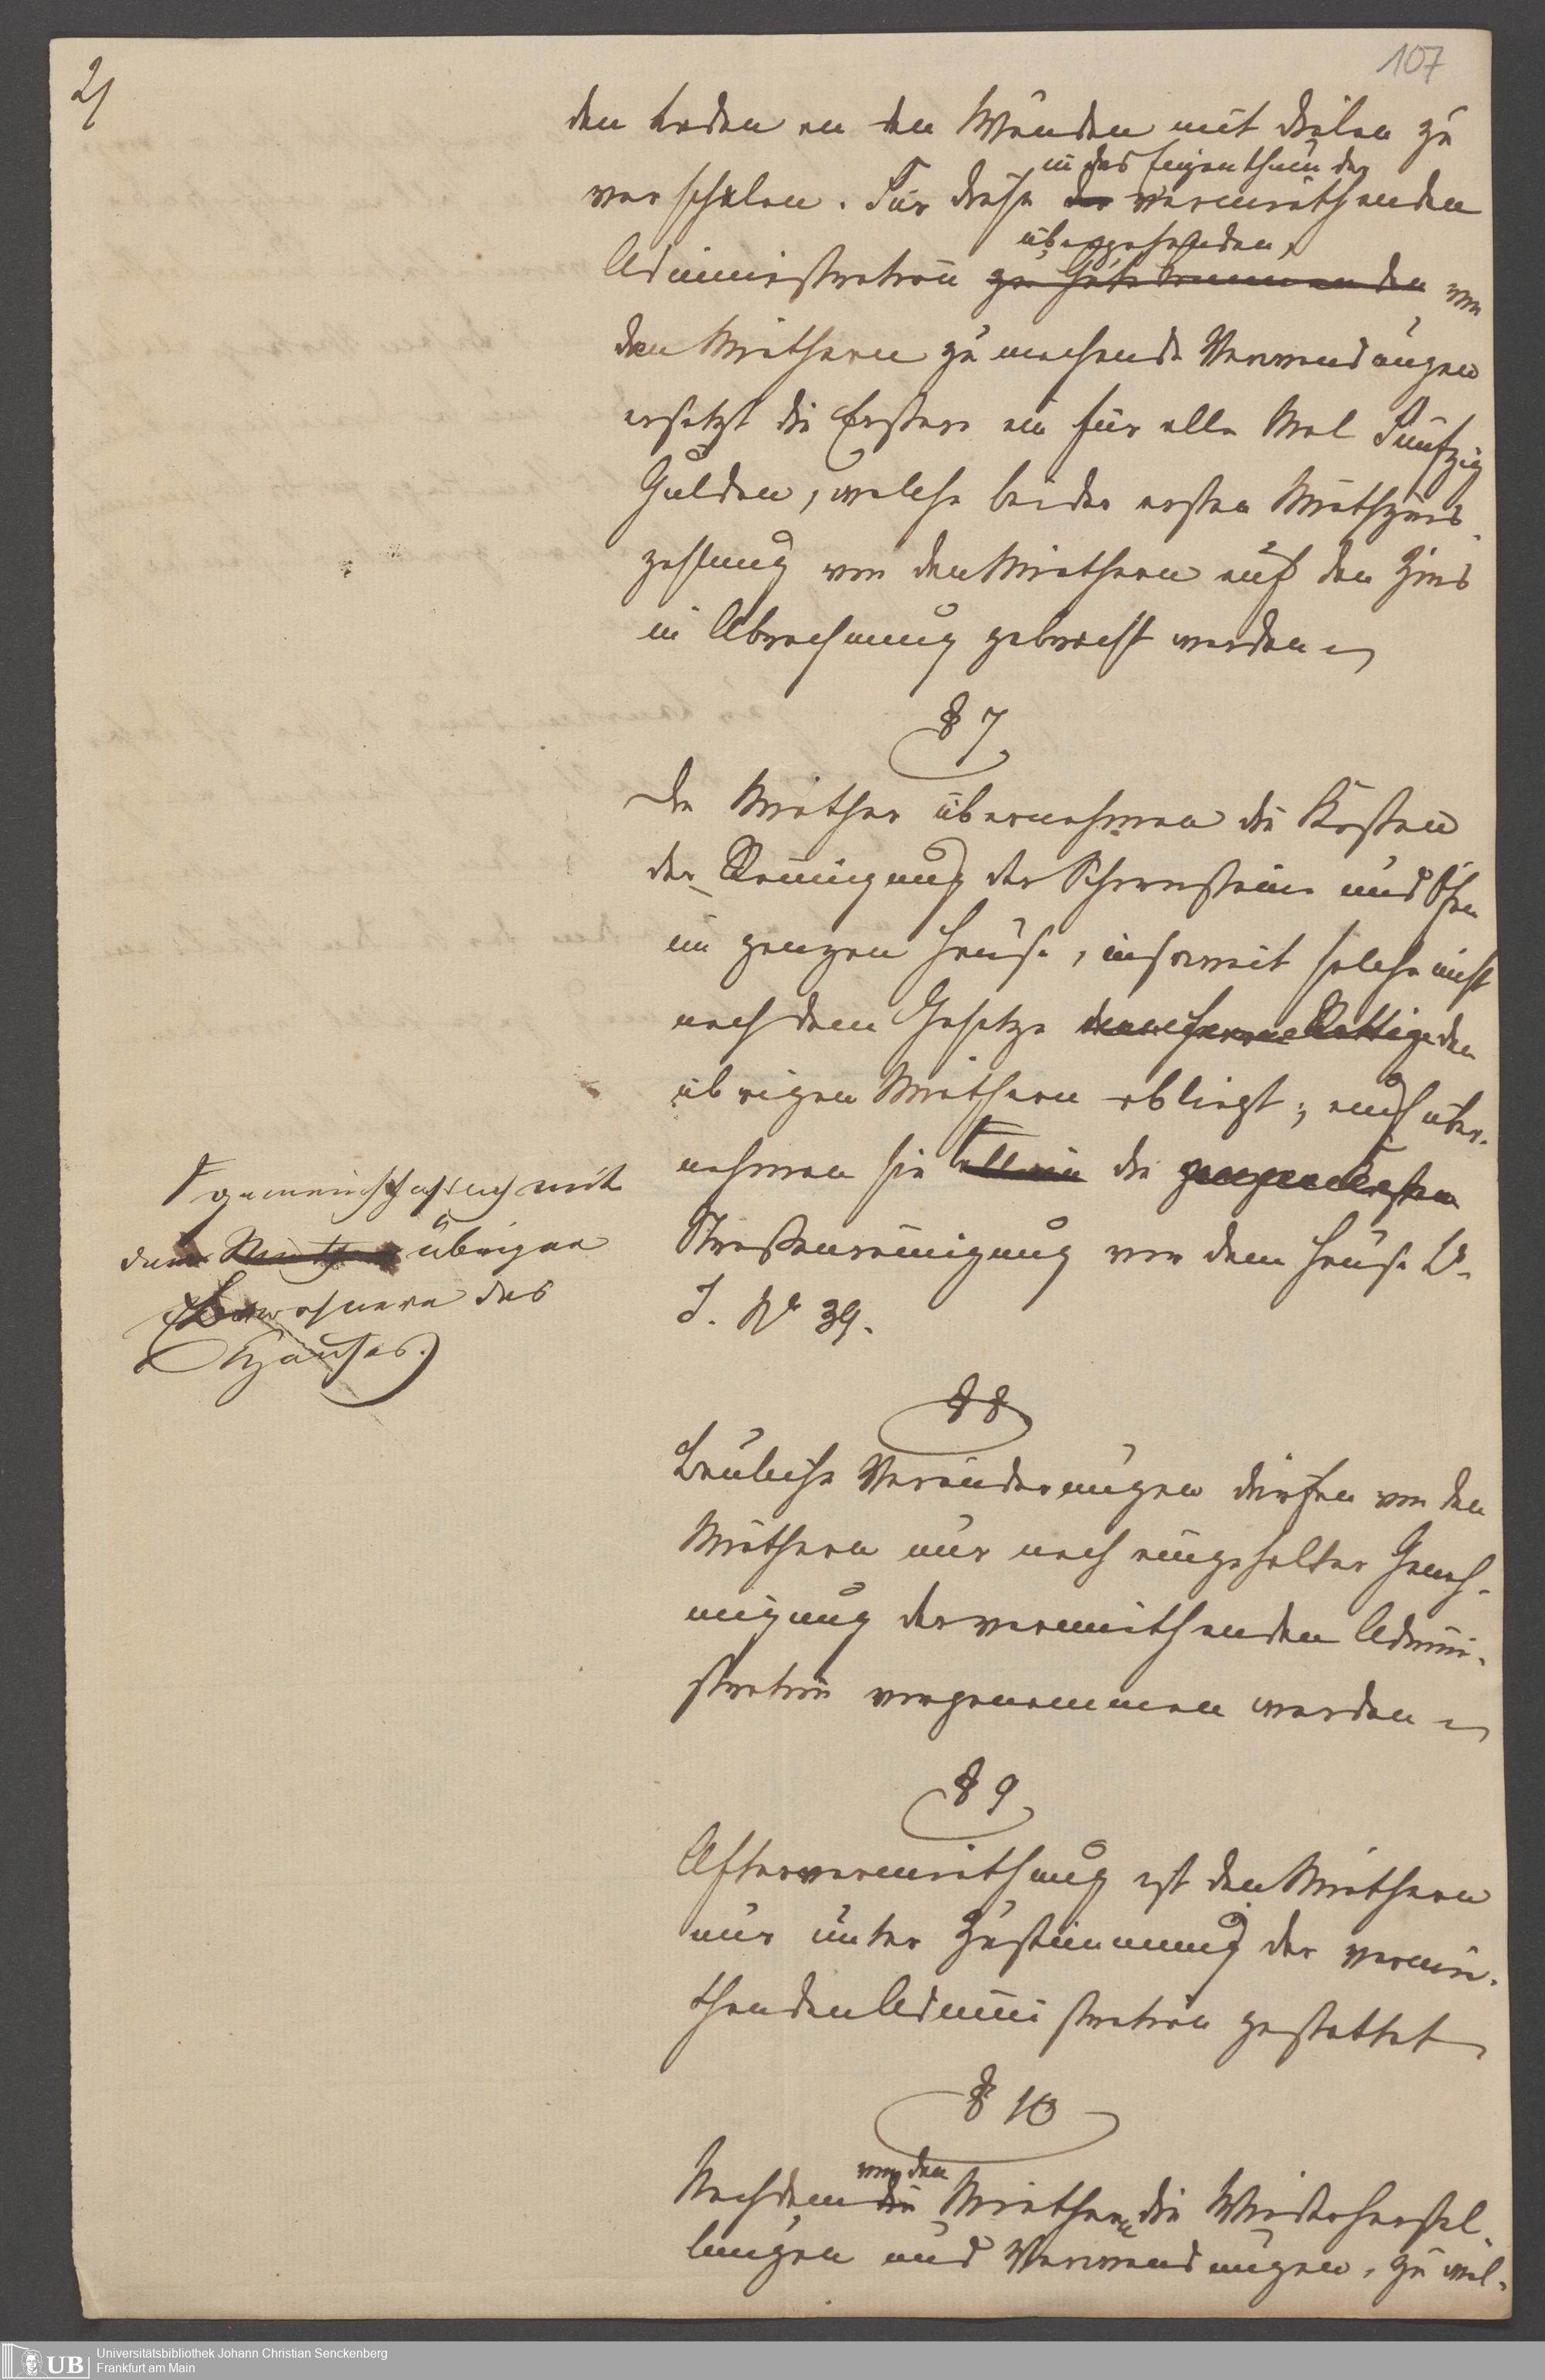 2/
107
den Boden an den Wänden mit Dielen zu
in das Eigenthum der
verschalen. Für diese der vermiethenden
übergehenden
Administration zu Gute kommenden von
den Miethern zu machende Verwendungen
ersetzt die Erstere ein für alle Mal Fünfzig
Gulden, welche bei der ersten Miethzins-
zahlung von den Miethern auf den Zins
in Abrechnung gebracht werden
§ 7
Die Miether übernehmen die Kosten
der Reinigung der Schornsteine und Öfen
im ganzen Hause, insoweit solche nicht
nach dem Gesetze den
übrigen Miethern obliegt; auch über-
nehmen sie allein die ganzen Kosten
Straßenreinigung vor dem Hause Lit.
J. No 39.
gemeinschaftlich mit
den übrigen
Bewohnern des
Hauses.)
§ 8
Bauliche Veränderungen dürfen von den
Miethern nur nach eingeholter Geneh-
migung der vermiethenden Admini-
stration vorgenommen werden
§ 9
Aftervermiethung ist den Miethern
nur unter Zustimmung der vermie-
thenden Administration gestattet
§ 10
von den
Nachdem die Miethern die Wiederherstel-
lungen und Verwendungen, zu wel-
UB Universitätsbibliothek Johann Christian Senckenberg
Frankfurt am Main